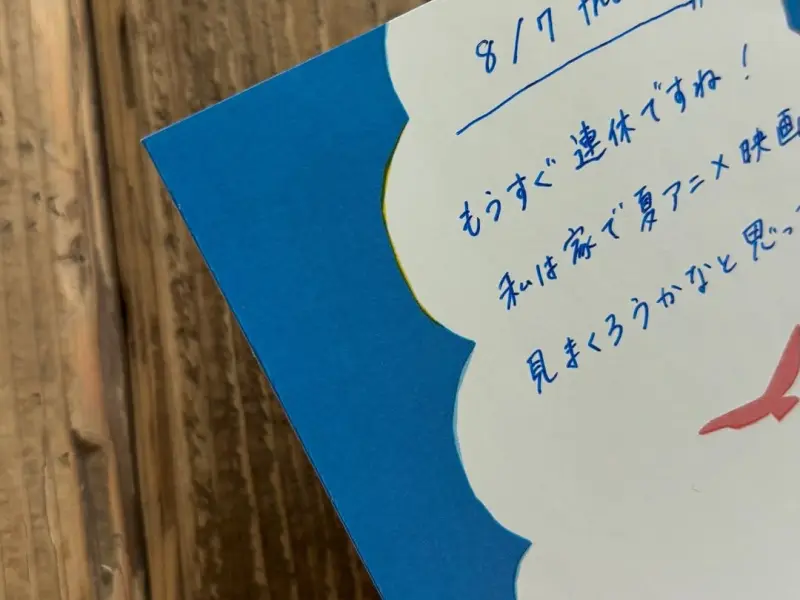 8/7
もうすぐ連休ですね!
私は家で夏アニメ映画
見まくろうかなと思っ